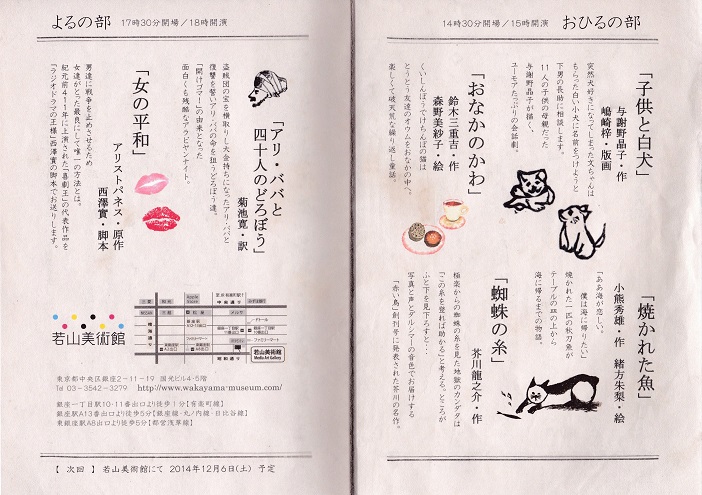 14時30分開場／15時開演 おひるの部
「子供と白犬」
与謝野晶子・作
嶋崎梓・版画
突然犬好きになってしまった文ちゃんは
もらった白い小犬に名前をつけようと
下男の長助に相談します。
11人の子供の母親だった
与謝野晶子が描く、
ユーモアたっぷりの会話劇。
「おなかのかわ」
鈴木三重吉・作
森野美紗子・絵
くいしんぼうでけちんぼの猫は
とうとう友達のオウムをおなかの中へ。
楽しくて破天荒な繰り返し童話。
「焼かれた魚」
小熊秀雄・作 緒方朱梨・絵
「ああ海が恋しい。
僕は海に帰りたい」
焼かれた一匹の秋刀魚が
テーブルの皿の上から
海に帰るまでの物語。
「蜘蛛の糸」
芥川龍之介・作
極楽からの蜘蛛の糸を見た地獄のカンダタは
「この糸を登れば助かる」と考える。ところが
ふと下を見下ろすと…
写真と声とダルシマーの音色でお届けする
「赤い鳥」創刊号に発表された芥川の名作。
よるの部 17時30分開場／18時開演
「アリ・ババと
四十人のどろぼう」
菊池寛・訳
盗賊団の宝を横取りし大金持ちになったアリ・ババと
復讐を誓いアリ・ババの命を狙うどろぼう達。
「開けゴマ！」の由来となった
面白くも残酷なアラビヤンナイト。
「女の平和」
アリストパネス・原作
西澤實・脚本
男達に戦争を止めさせるため
女達がとった最良にして唯一の方法とは。
紀元前411年に上演された「喜劇王」の代表作品を
「ラジオドラマの王様」西澤實の脚本でお送りします。
若山美術館
若山美術館
Media Art Gallery
東京都中央区銀座2－11－19 国光ビル4・5階
Tel 03－3542－3279 http://www.wakayama-museum.com/
銀座一丁目駅10・11番出口より徒歩1分【有楽町線】
銀座駅A13番出口より徒歩5分【銀座線・丸ノ内線・日比谷線】
東銀座駅A8出口より徒歩5分【都営浅草線】
【 次回 】 若山美術館にて 2014年12月6日(土) 予定